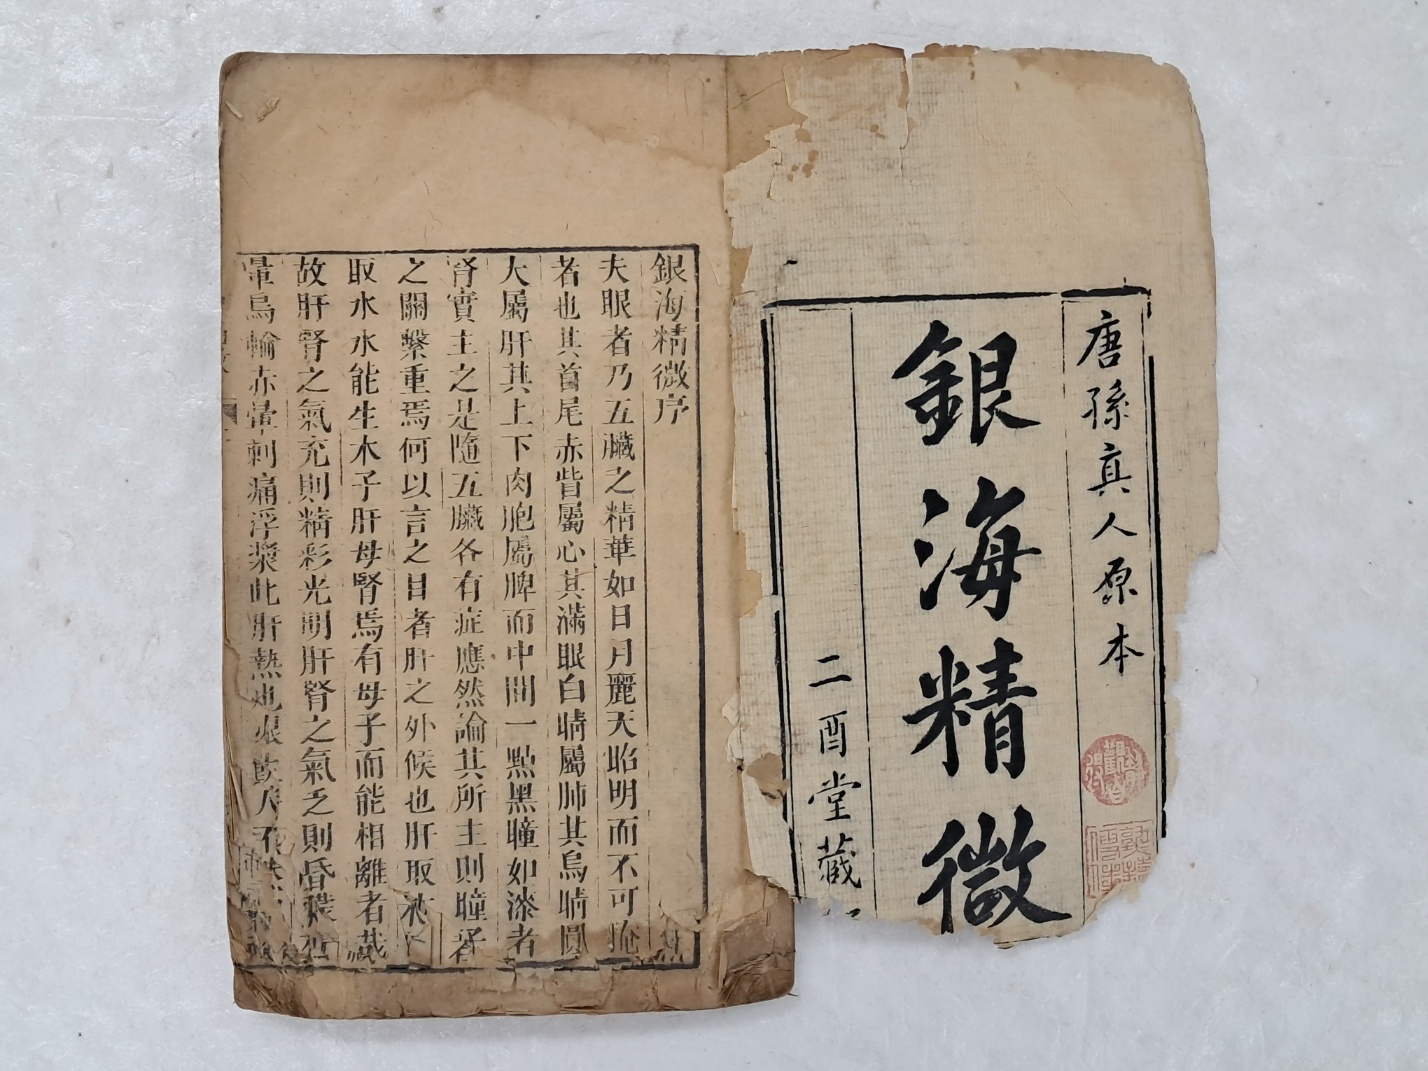 唐孫真人原本
銀海精微
二酉堂藏
銀海精微序
夫眼者乃五臟之精華如日月麗天昭明而不可掩
者也其首尾赤眥屬心其滿眼白睛屬肺其烏睛圓
大屬肝其上下肉胞屬脾而中間一點黑瞳如漆者
腎實主之是隨五臟各有症應然論其所主則瞳子
之關繫重焉何以言之目者肝之外候也肝取木
取水水能生木子肝母腎焉有母子而能相離者哉
故肝腎之氣充則精彩光明肝腎之氣乏則昏矇
暈烏輪赤暈刺痛浮漿此肝熱也